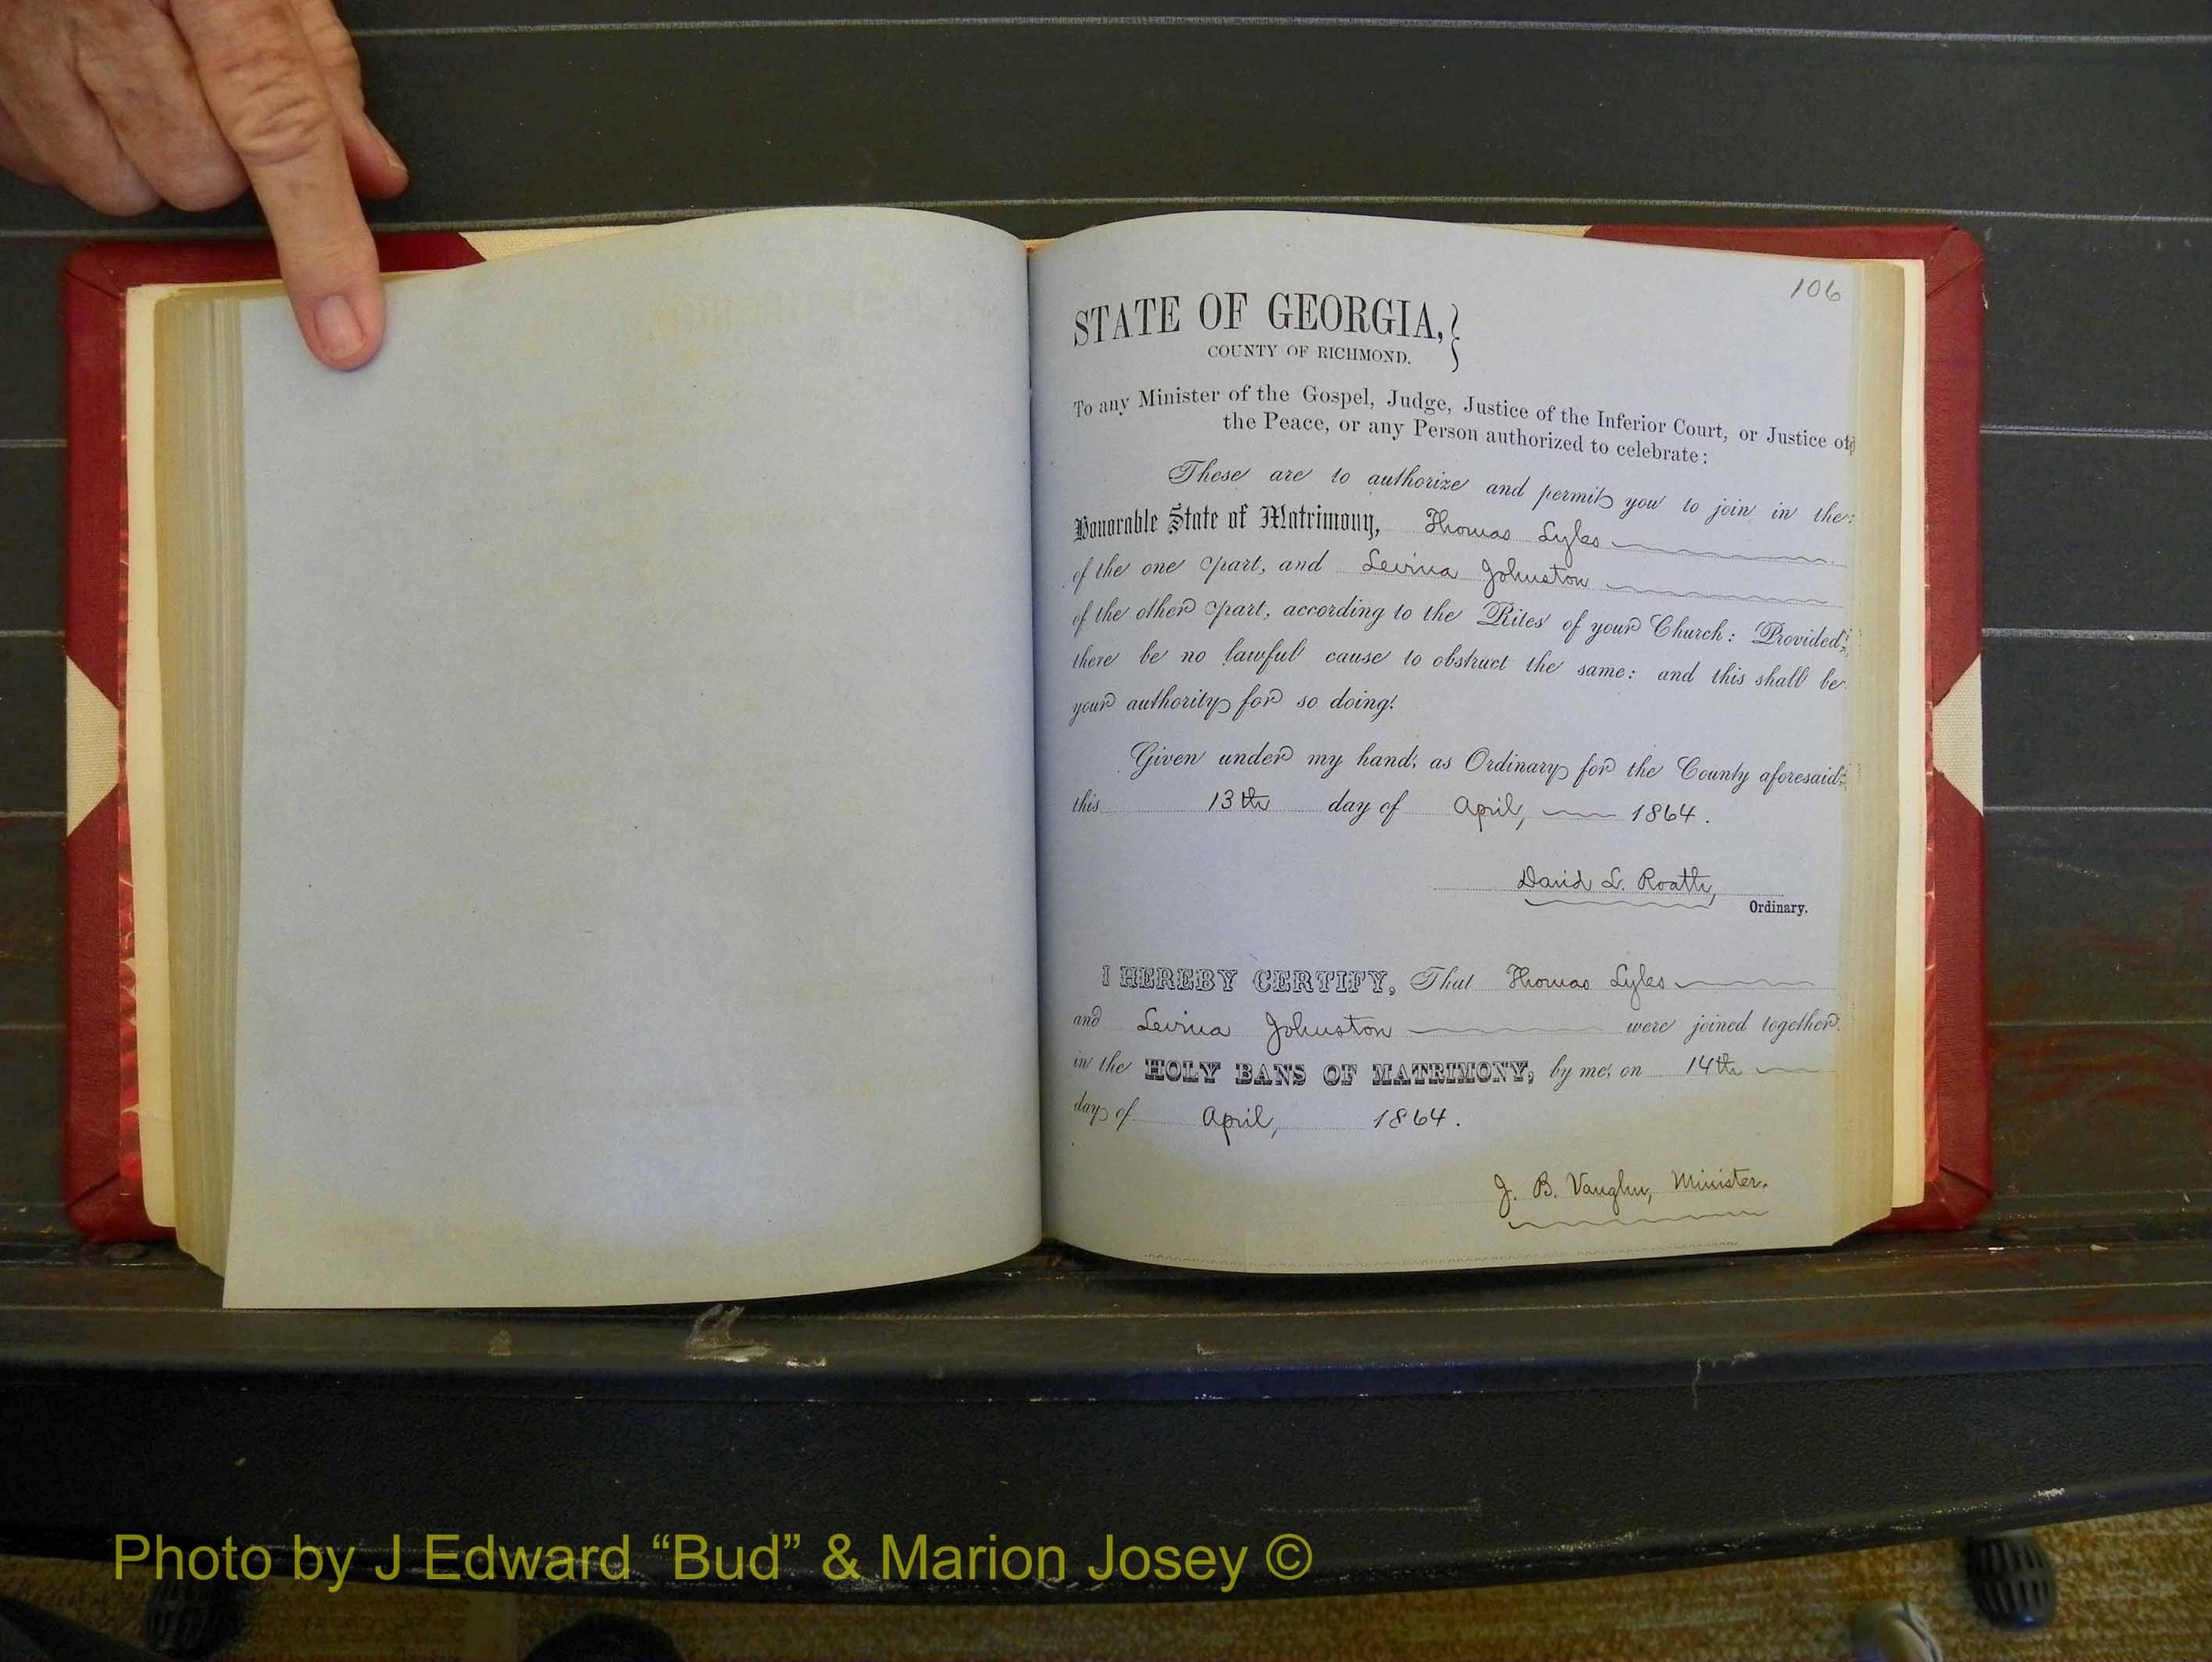 106
STATE OF GEORGIA,}
COUNTY OF RICHMOND.
To any Minister of the Gospel, Judge, Justice of the Inferior Court, or Justice of
the Peace, or any Person authorized to celebrate:
These are to authorize and permit you to join in the
Honorable State of Matrimony, Thomas Lyles
of the one part, and Levina Johnston
of the other part, according to the Rites of your Church: Provided,
there be no lawful cause to obstruct the same: and this shall be
your authority for so doing.
Given under my hand, as Ordinary for the County aforesaid,
this 13th day of April, 1864.
David L. Roath,
Ordinary.
I HEREBY CERTIFY, That Thomas Lyles
and Levina Johnston were joined together
in the HOLY BANS OF MATRIMONY, by me, on 14th
day of April, 1864.
J. B. Vaughn, Minister.
Photo by J Edward “Bud” & Marion Josey ©